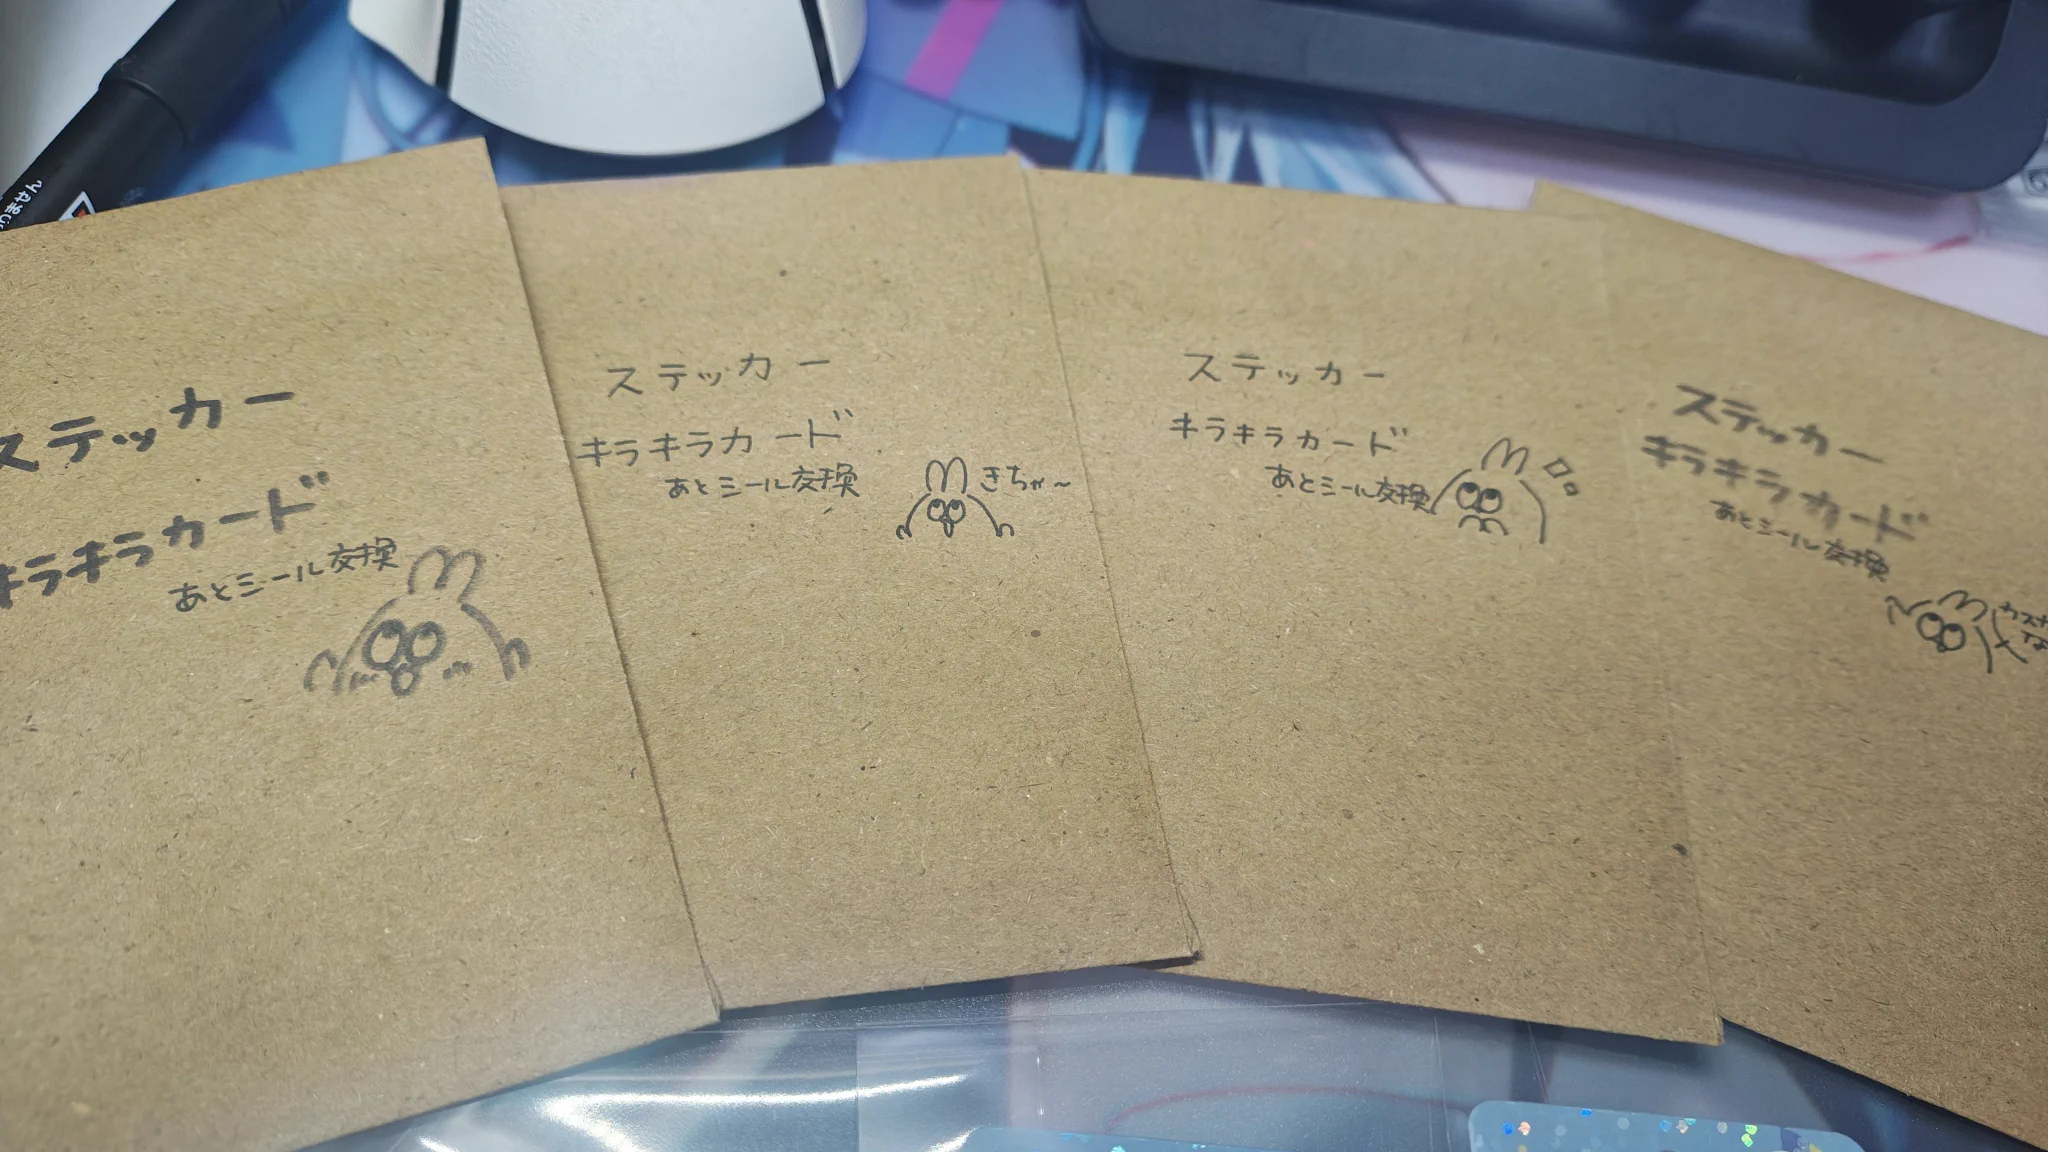 りません
ステッカー
キラキラカード
あとシール交換
ステッカー
キラキラカード
あとシール交換
きちゃ~
ステッカー
キラキラカード
あとシール交換
ステッカー
キラキラカード
あとシール交換